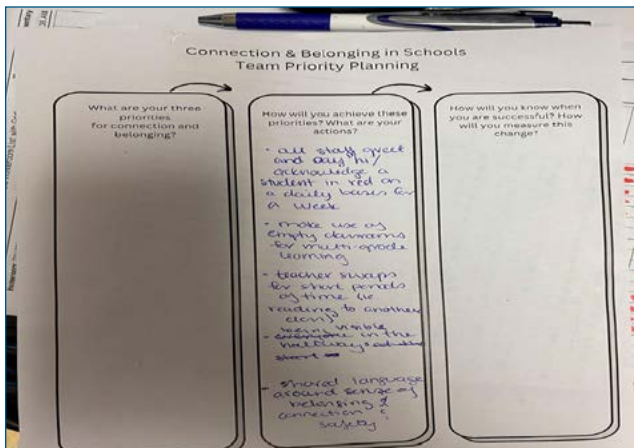 Connection & Belonging in Schools
Team Priority Planning
What are your three
priorities
for connection and
belonging?
How will you achieve these
priorities? What are your
actions?
- all staff greet
and say hi/
acknowledge a
student in red on
a daily bases for
a week
- make use of
empty classrooms
for multi-grade
learning
- teacher swaps
for short periods
of time (ie.
reading to another
class)
being visible
- everyone in the
hallways
short
- shared language
around sense of
belonging &
connection &
safety
How will you know when
you are successful? How
will you measure this
change?